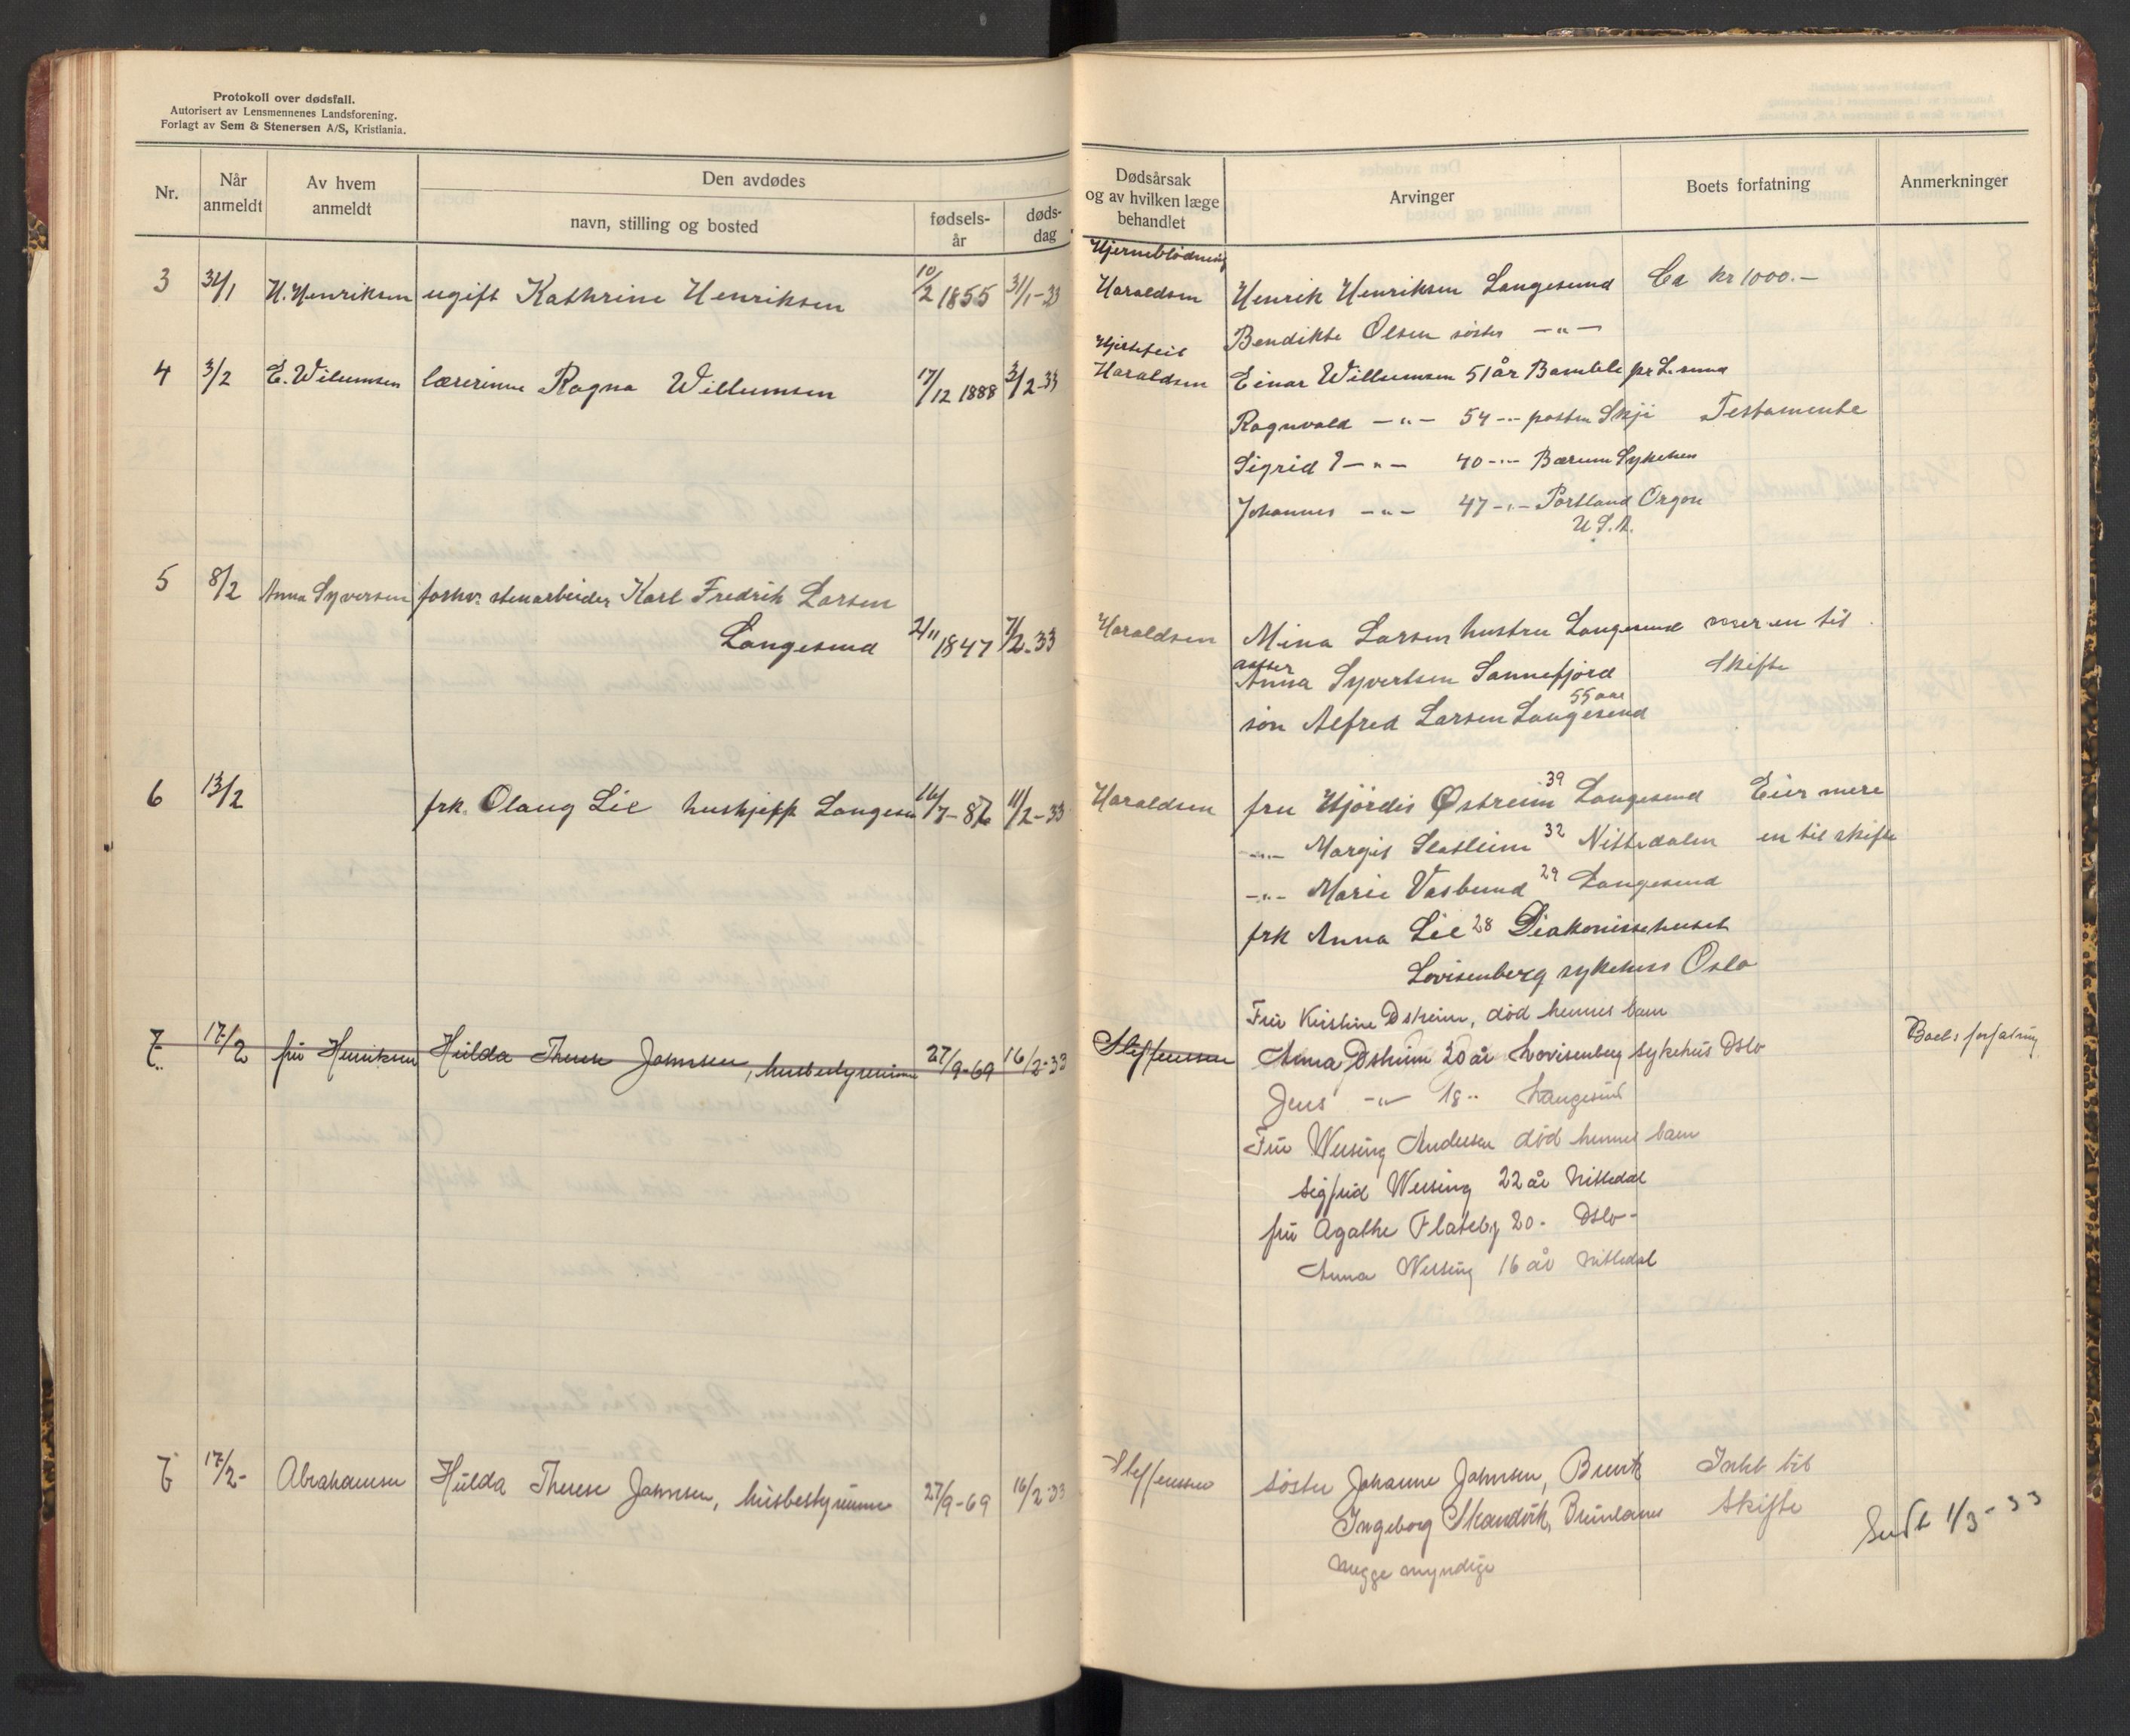 Protokoll over dødsfall.
Autorisert av Lensmennenes Landsforening.
Forlagt av Sem & Stenersen A/S, Kristiania.
Nr.
Når anmeldt
Av hvem anmeldt
Den avdødes
navn, stilling og bosted
fødsels-år
døds-dag
Dødsårsak og av hvilken læge behandlet
Arvinger
Boets forfatning
Anmerkninger
Hjerneblødning
3 31/1 H. Henriksen ugift Kathrine Henriksen 10/2 1855 31/1-33 Haraldsen Henrik Henriksen Langesund Ca kr 1000.-
Bendikte Olsen søster -"-
Hjertefeil
4 3/2 E. Wilumsen lærerinne Ragna Willumsen 17/12 1888 3/2-33 Haraldsen Einar Willumsen 51 år Bamble pr L.sund
Ragnvald -"- 54 -"- posten Skji Testamente
Sigrid -"- 40 -"- Bærum Sykehus
Johannes -"- 47 -"- Portland Orgon
U.S.A.
5 8/2 Anna Syversen forhv. stenarbeider Karl Fredrik Larsen
Langesund 2/11 1847 7/2-33 Haraldsen Mina Larsen hustru Langesund mer en til
datter
Anna Syvertsen Sannefjord Skifte
55 aar
søn Alfred Larsen Langesund
6 13/2 frk. Olaug Lie hushjelp Langesu 16/7-82 11/2-33 Haraldsen fru Hjørdis Østreim 39 Langesund Eier mere
-"- Margit Slatleim 32 Nittedalen en til skifte
-"- Marie Vasbund 29 Langesund
frk Anna Lie 28 Diakonissehuset
Lovisenberg sykehus Oslo
Fru Kristine Osheim, død hennes barn
7 17/2 fru Henriksen Hulda Therese Johnsen, husbestyrerinne 27/9-69 16/2-33 Steffensen Anna Osheim 20 år Lovisenberg sykehus Oslo Boets forfatning
Jens -"- 18 -"- Langesund
Fru Wessing Andersen død hennes barn
Sigfrid Wessing 22 år Nittedal
fru Agathe Flateby 20 - Oslo -
Anna Wessing 16 år Nittedal
7 17/2- Abrahamsen Hulda Therese Johnsen, husbestyrerinne 27/9-69 16/2-33 Steffensen søster Johanne Johnsen, Brevik Intet til
Ingeborg Skandvik, Brunlanes Skifte
begge myndige
Sendt 1/3-33